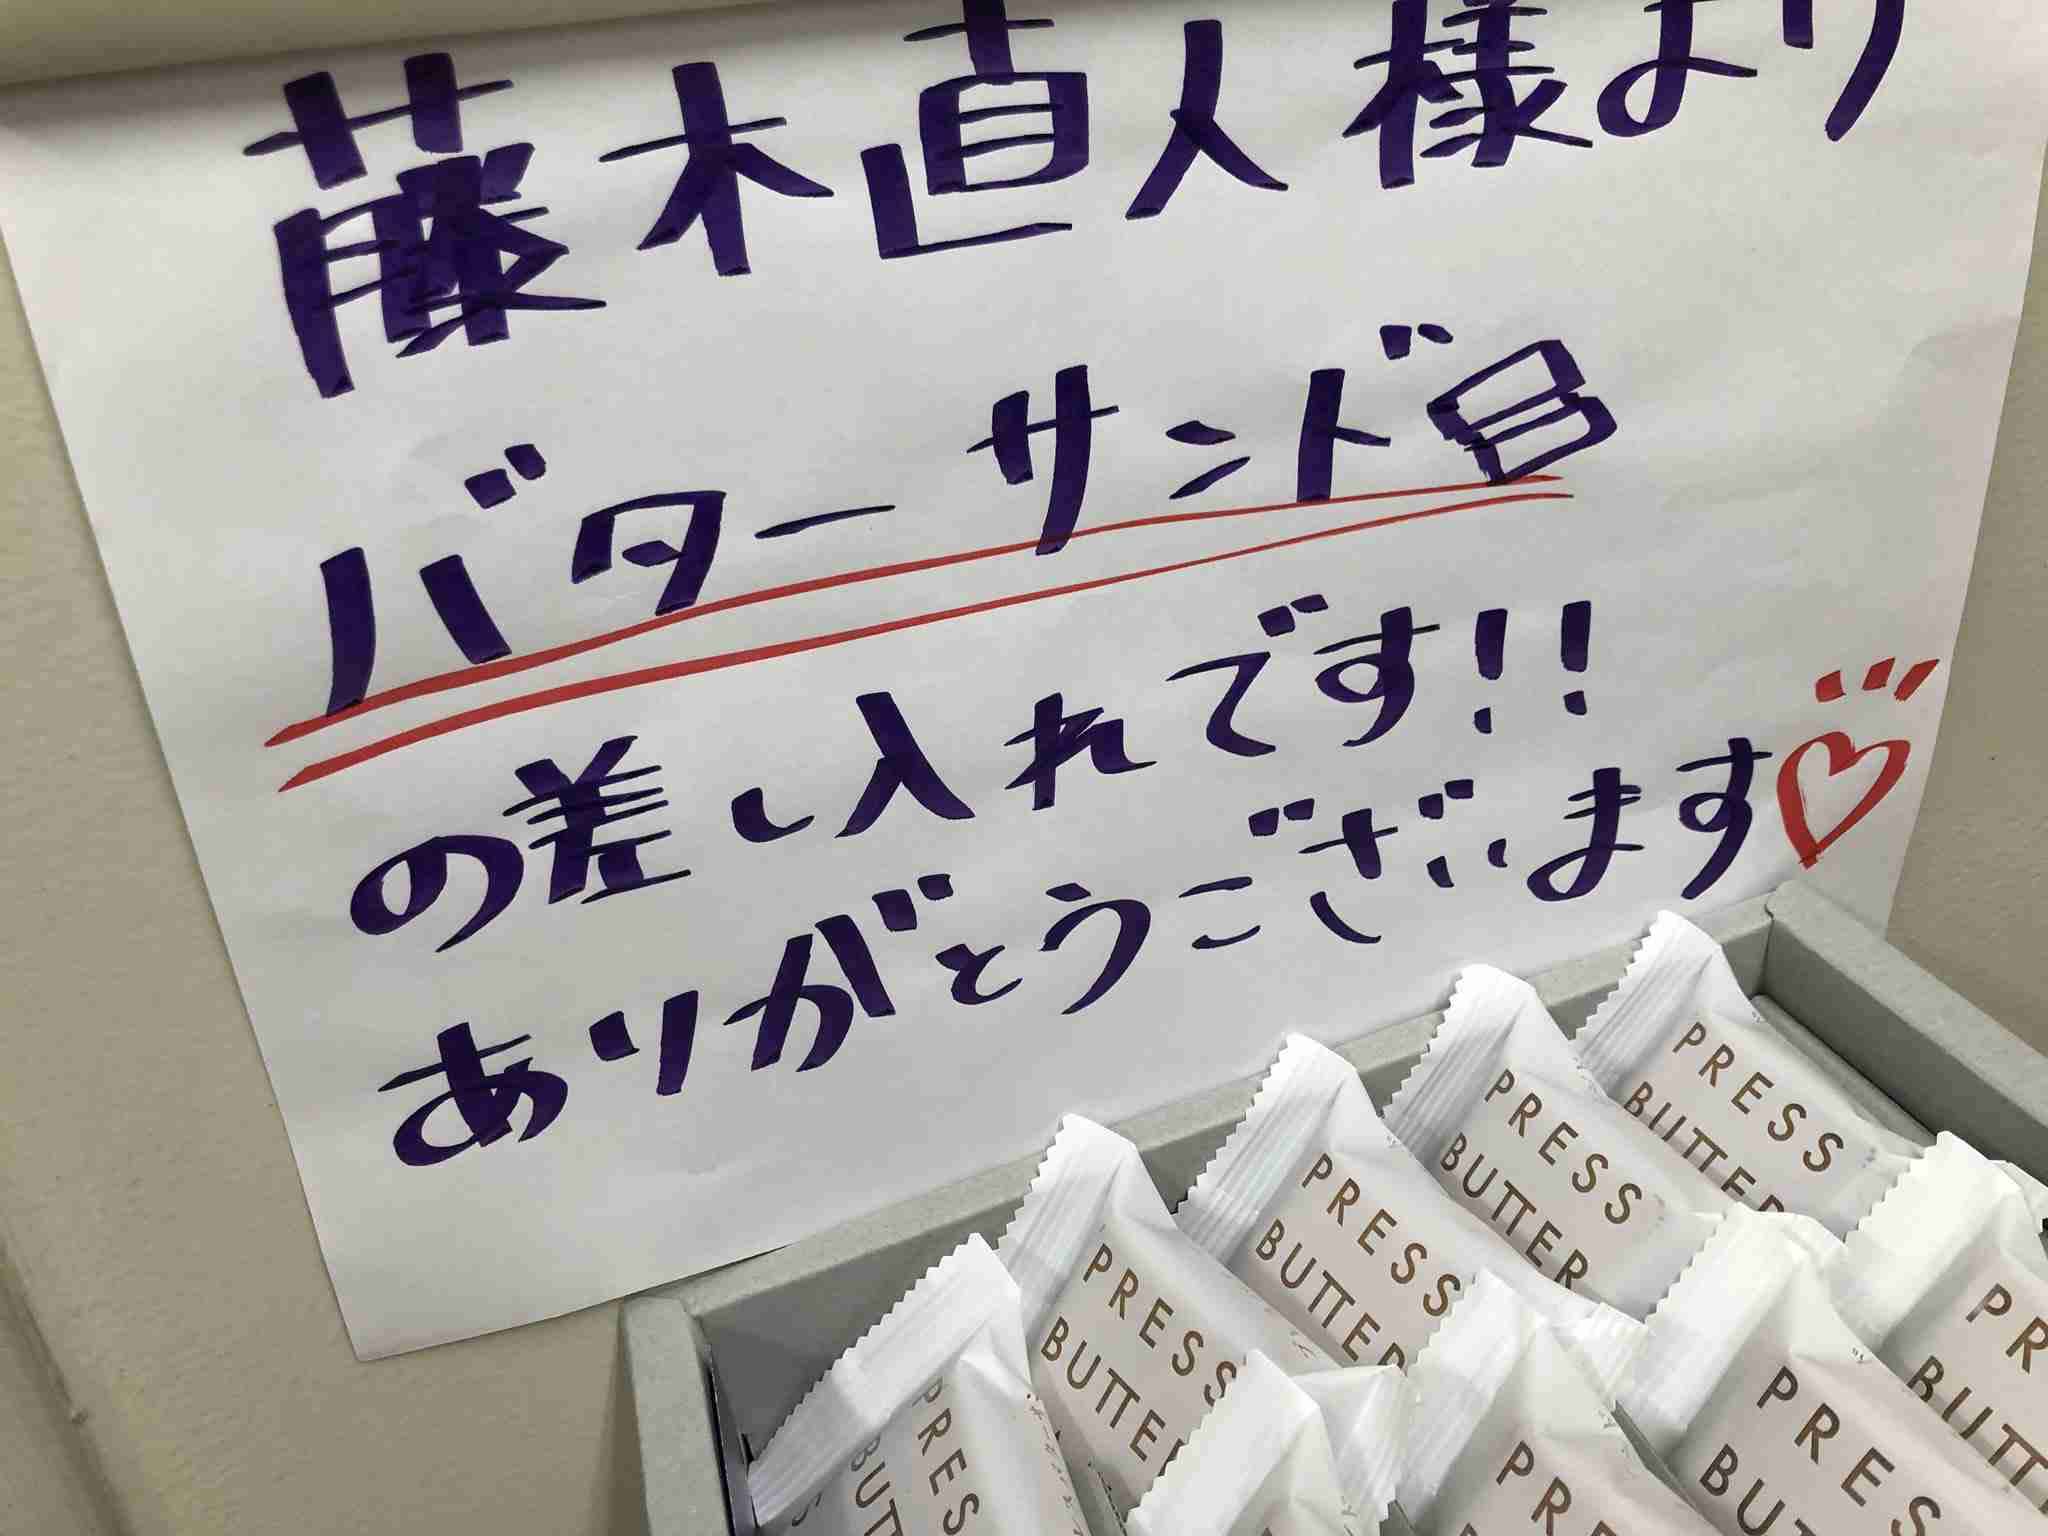 藤木直人様より
バターサンド
の差し入れです!!
ありがとうございます♡
PRESS
BUTTER
PRESS
BUTTER
PRESS
BUTTER
PRESS
BUTTE
PRESS
BUT
PR
BUTT
PRE
BU
PR